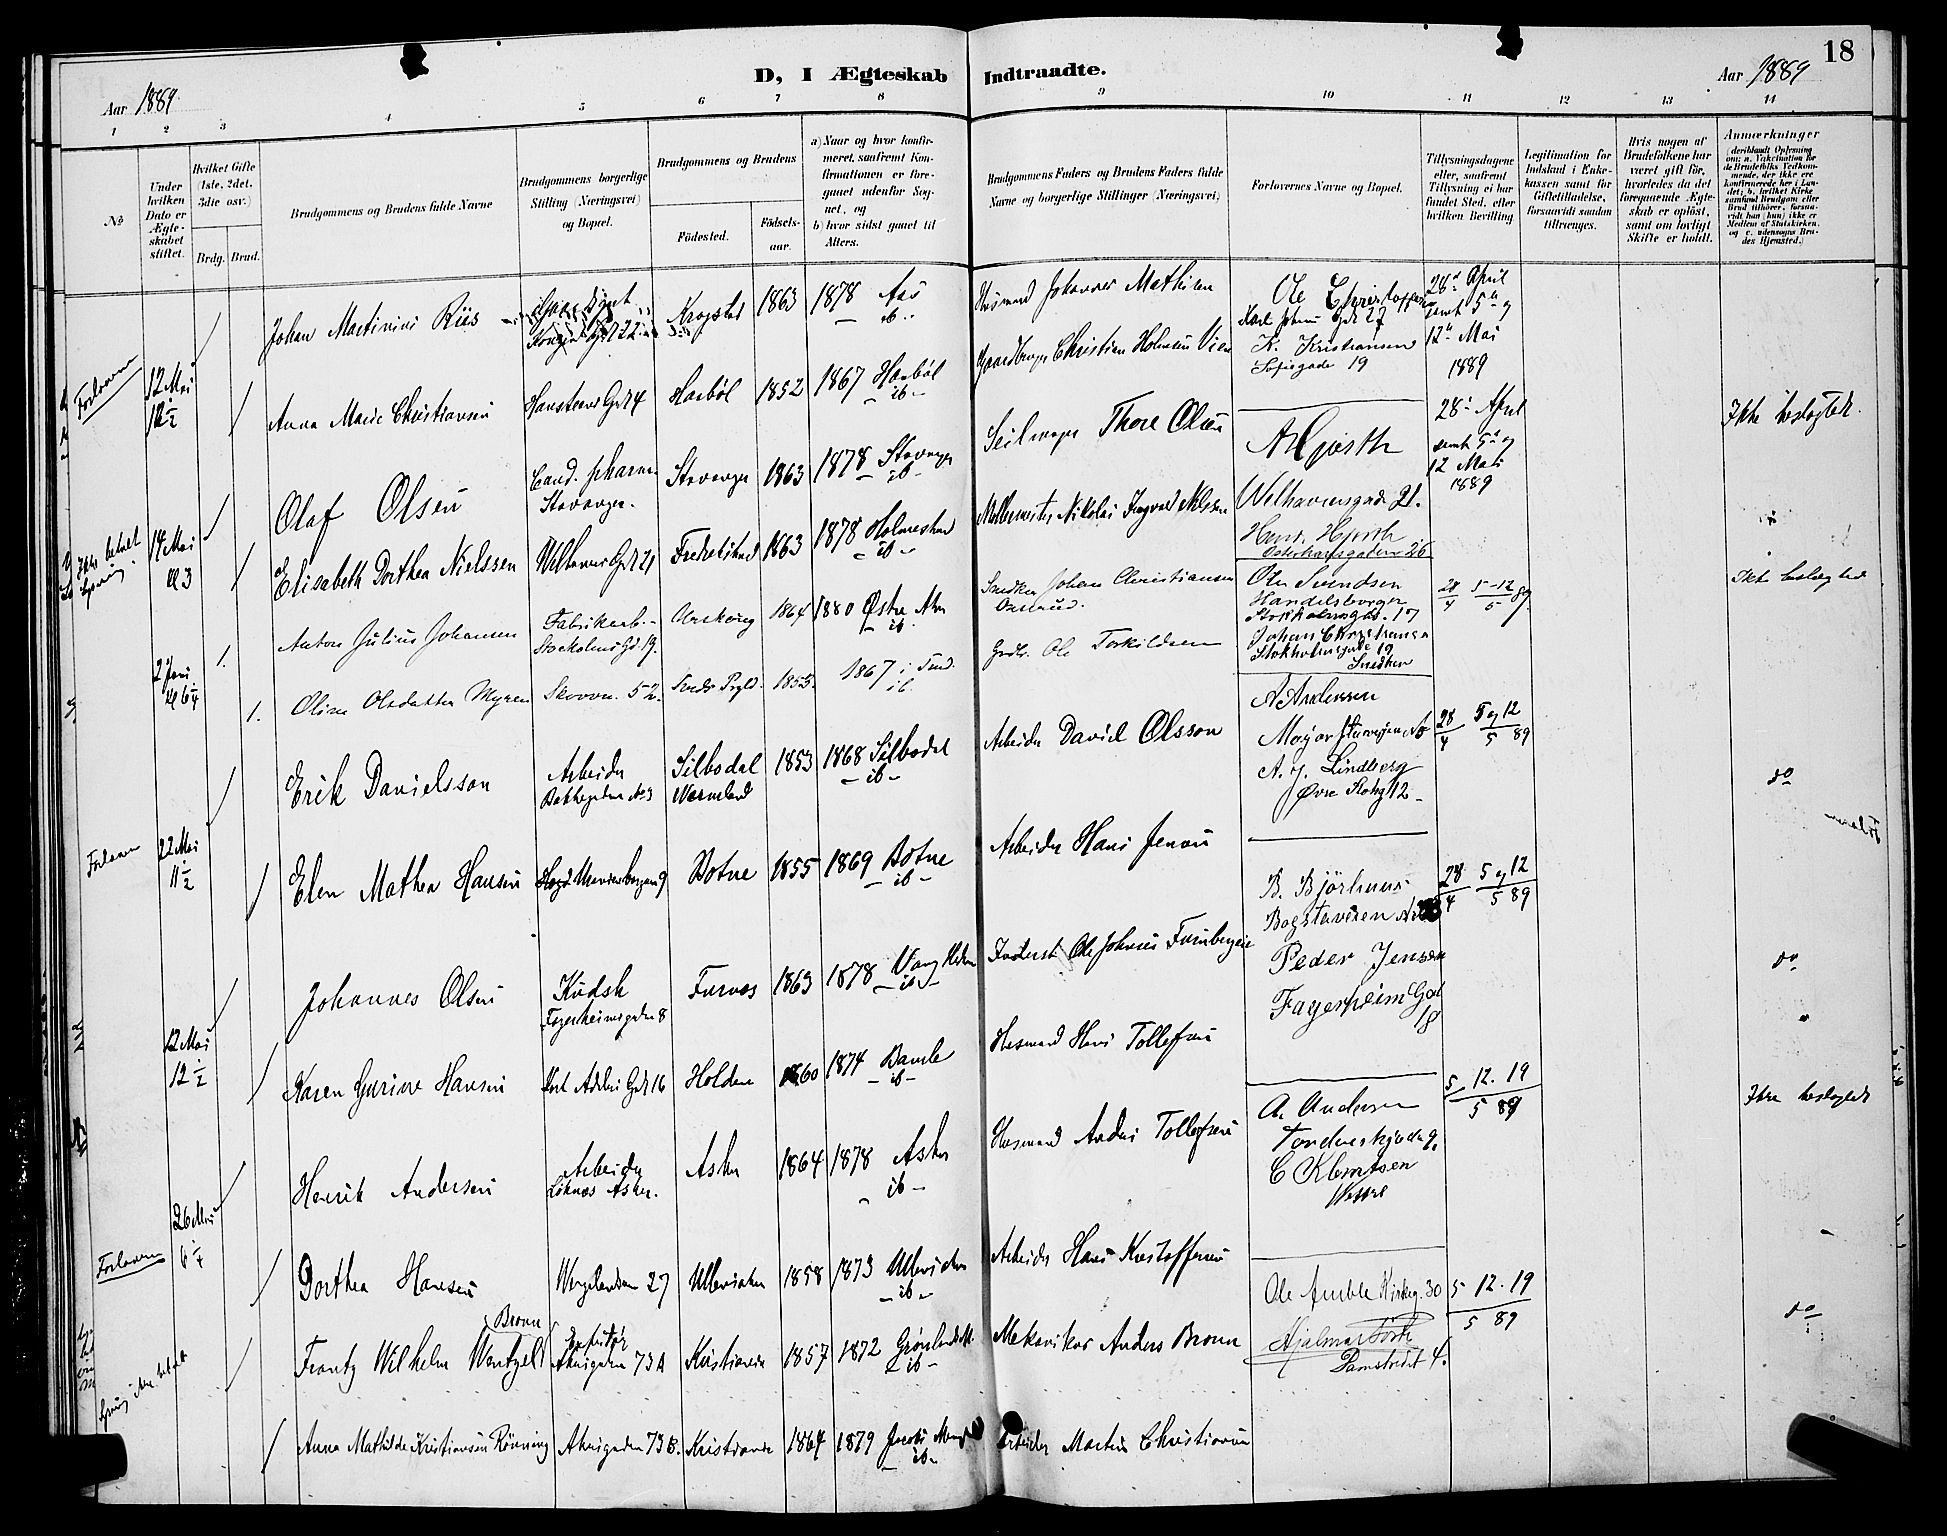 D, I Ægteskab Indtraadte.
18
Aar 1889
Aar 1889
1 2 3 4 5 6 7 8 9 10 11 12 13 14
No
Under hvilken Dato er Ægteskabet stiftet.
Hvilket Gifte (1ste, 2det, 3die osv.)
Brdg. Brud.
Brudgommens og Brudens fulde Navne
Brudgommens borgerlige Stilling (Næringsvei) og Bopæl.
Brudgommens og Brudens
Fødested.
Fødselsaar.
a) Naar og hvor konfirmeret, saafremt Konfirmationen er foregaaet udenfor Sognet, og
b) hvor sidst gaaet til Alters.
Brudgommens Faders og Brudens Faders fulde Navne og borgerlige Stillinger (Næringsvei)
Forlovernes Navne og Bopæl.
Tillysningsdagene eller, saafremt Tillysning ei har fundet Sted, efter hvilken Bevilling
Legitimation for Indskud i Enkekassen samt for Giftetilladelse, forsaavidt saadan tiltrænges.
Hvis nogen af Brudefolkene har været gift før, hvorledes da det foregaaende Ægteskab er opløst, samt om lovligt Skifte er holdt.
Anmærkninger
(deriblandt Oplysning om: a. Vakcination for de Brudefolks Vedkommende, der ikke ere konfirmerede her i Landet; b. hvilket Kirkesamfund Brudgom eller Brud tilhører, forsaavidt han (hun) ikke er Medlem af Statskirken, og c. udensogns Brudes Hjemsted.)
12 Mai 12½
Johan Martinius Riis
Krogstad 1863 1878 Aas ib.
Husmand Johannes Mathisen
Ole Christoffersen
Karl Johans Gde 27
K. Kristiansen
Sofiegade 19
28de April samt 5te og 12te Mai 1889
Anna Marie Christiansen
Hansteens Gd 4
Haabøl 1852 1867 Haabøl ib.
Gaardbruger Christian Holmsen
Ikke beslægtet.
14 Mai Kl 3
Olaf Olsen
Cand. pharm. Stavanger.
Stavanger 1863 1878 Stavanger ib.
Seilmager Thore Olsen
A Hjorth
Welhavensgade 21.
28de April samt 5te og 12 Mai 1889
Elisabeth Dorthea Nielssen
Welhavens Gd 21
Fredrikstad 1863 1878 Holmestrand ib.
Møllermester Nikolai Ingvald Nilssen
Hjorth
26
Ikke beslægtede
2 Juni Kl 6¼
1.
Anton Julius Johansen
Fabrikarb. Stockholms Gd 19.
Urskoug 1864 1880 Østre Aker ib.
Snedker Johan Christiansen
Ole Svendsen
Handelsborger
Stokholmgd. 17
Johan Christiansen
Stokholmsgade 19
Snedker
28/4 5-12/5 89.
1.
Oline Olsdatter Myren
1855. 1867 ib.
Grdbr. Ole Torkildsen
22 Mai 11½
Erik Danielsson
Arbeider
Bakkegaden No 3
Silbodal Wermland 1853 1868 Silbodal ib.
Arbeider David Olsson
A Andersen
A. J. Lindberg
Øvre Slotsg 12
28/4 5 og 12/5 89
do
Forloverne
Elen Mathea Hansen
Botne 1855 1869 Botne ib.
Arbeider Hans Jensen
12 Mai 12½
Johannes Olsen
Kudsk
Fagerheimsgaden 8
Furnes 1863 1878 Vang Hedm ib.
Inderst Ole Johnsen Furnbergeie
B. Bjørhuus
Bogstaveien
Peder Jensen
Fagerheim Gd 18
28/4 5 og 12/5 89
do
Karen Gurine Hansen
Kort Adelers Gd 16
Holden 1860 1874 Bamle ib.
Husmand Hans Tollefsen
26 Mai 6¼
Henrik Andersen
Arbeider
Asker.
Asker 1864 1878 Asker ib.
Husmand Anders Tollefsen
A. Andersen
C Klemtsen
5 12. 19/5 89
Ikke beslægtet
Dorthea Hansen
Wergelandsvn 27
Ullensaker 1858 1873 Ullensaker ib.
Arbeider Hans Kristoffersen
Frantz Wilhelm Wentzel Bronn
Akersgaden 73 A
Kristiania 1857 1872 Grønlands M. ib.
Mekaniker Anders Bronn
Ole Amble Kirkeg. 30
Hjalmar
Damstrædet 4.
5 12. 19/5 89
do
Anna Mathilde Kristiansen Rönning
Akersgaden 73 B.
Kristiania 1864 1879 Jacobs Menigh ib.
Arbeider Martin Christiansen